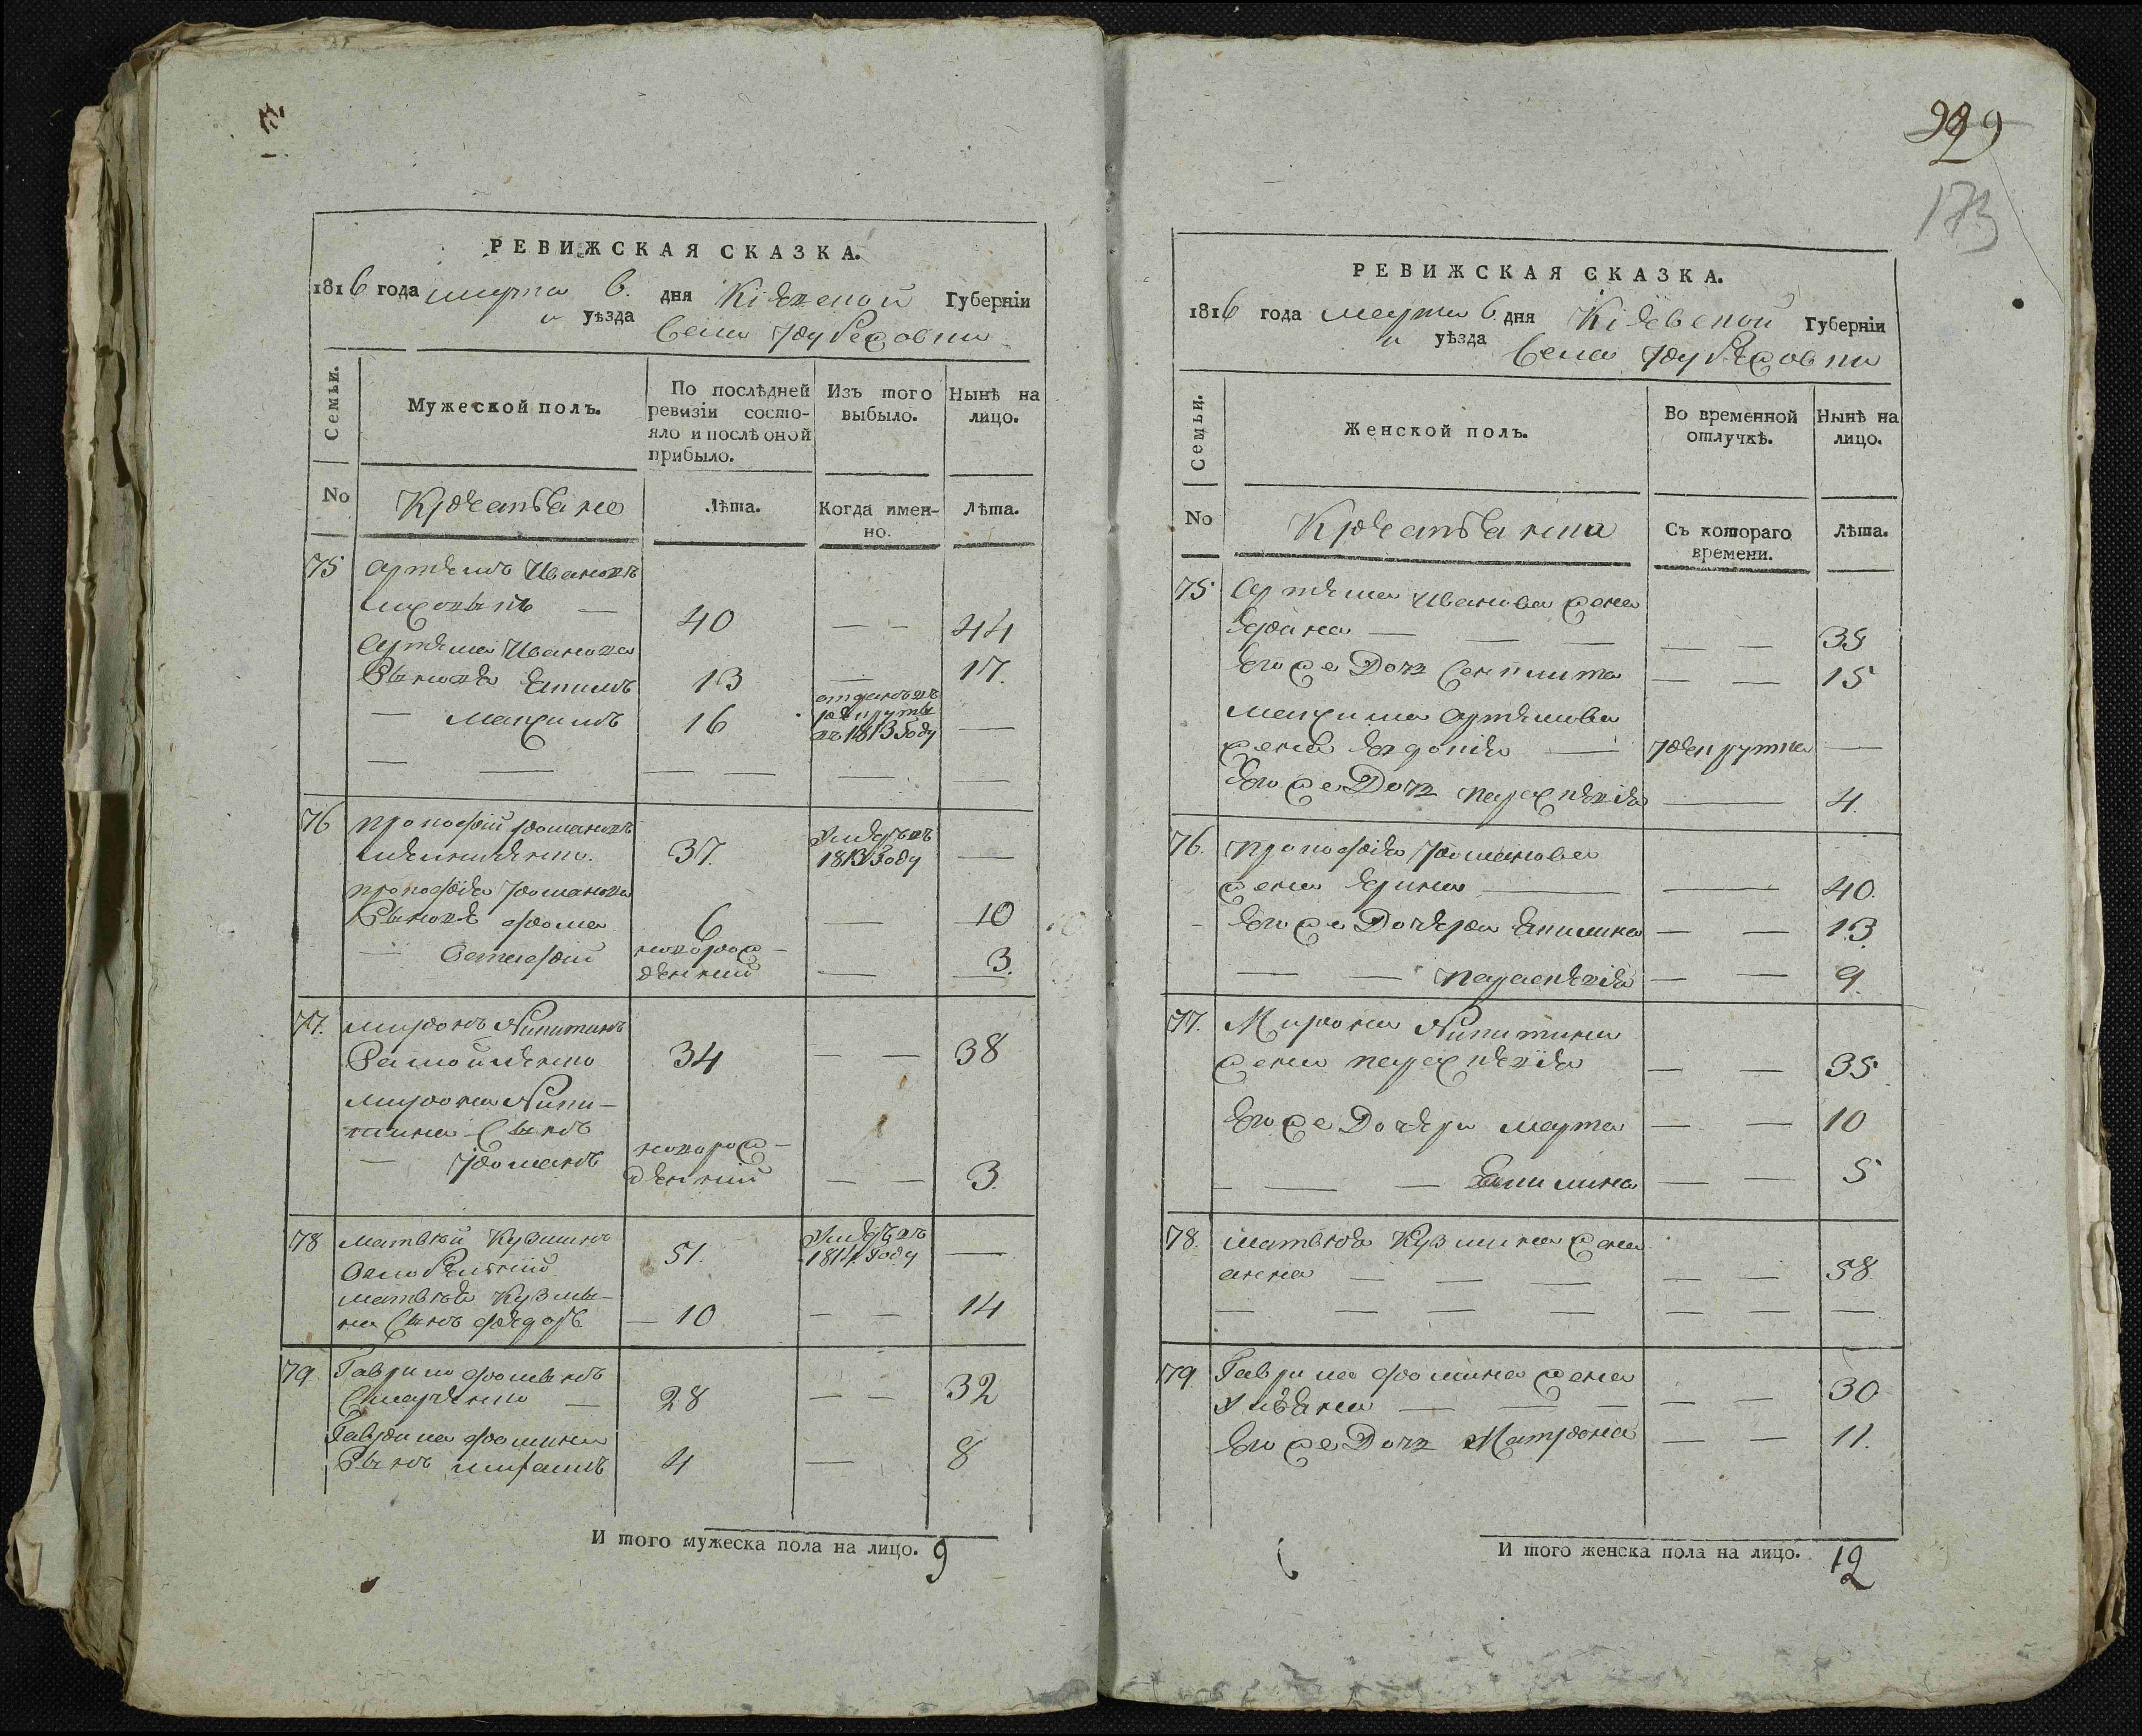 РЕВИЖСКАЯ СКАЗКА.
1816 года марта 6. дня Кіевской Губерніи
уѣзда Села
Семьи.
Мужеской полъ.
По послѣдней ревизіи состо-
яло и послѣ оной
прибыло.
Изъ того
выбыло.
Нынѣ на
лицо.
No
Крестьяне
Лѣта.
Когда имен-
но.
Лѣта.
75 Артемъ Ивановъ
40 — — 44
Артема Иванова
Сыновья Екимъ 13 — 17.
— Максимъ 16 отданъ въ
рекруты
въ 1813 году —
76 Прокофій Романовъ
37. умеръ въ
1813 году —
Прокофія Романова
Сыновья Фома 6 — 10
— Остафій новорож-
денній — 3.
77. Миронъ Никитинъ
Самойленко 34 — — 38
Мирона Ники-
тина Сынъ
— Романъ новорож-
денній — — 3.
78 Матвѣй Кузминъ
51. умеръ въ
1814 году —
Матвѣя Кузми-
на Сынъ Федоръ — 10 — — 14
79 Гаврило Фоминъ
— 28 — — 32
Гаврила Фомина
Сынъ 4 — 8
И того мужеска пола на лицо. 9
929
173
РЕВИЖСКАЯ СКАЗКА.
1816 года марта 6. дня Кіевской Губерніи
уѣзда Села
Семьи.
Женской полъ.
Во временной
отлучкѣ.
Нынѣ на
лицо.
No
Крестьянки
Съ котораго
времени.
Лѣта.
75 Артема Иванова жена
— — — — — 35
Его же Дочь — — 15
Максима Артемова
жена Евдокія — рекрутка —
Его же Дочь Параскевія — 4.
76. Прокофія Романова
жена Ирина — — 40.
Его же Дочери Акилина — — 13
— — Параскевія — — 9.
77. Мирона Никитина
жена Параскевія — — 35.
Его же Дочери Марта — — 10
— — — Акилина — — 5
78. Матвѣя Кузмина жена
Анна — — — — — 58
— — — — — — — —
79. Гаврила Фомина жена
Уліяна — — — — — 30
Его же Дочь Матрона — — 11.
И того женска пола на лицо. 12